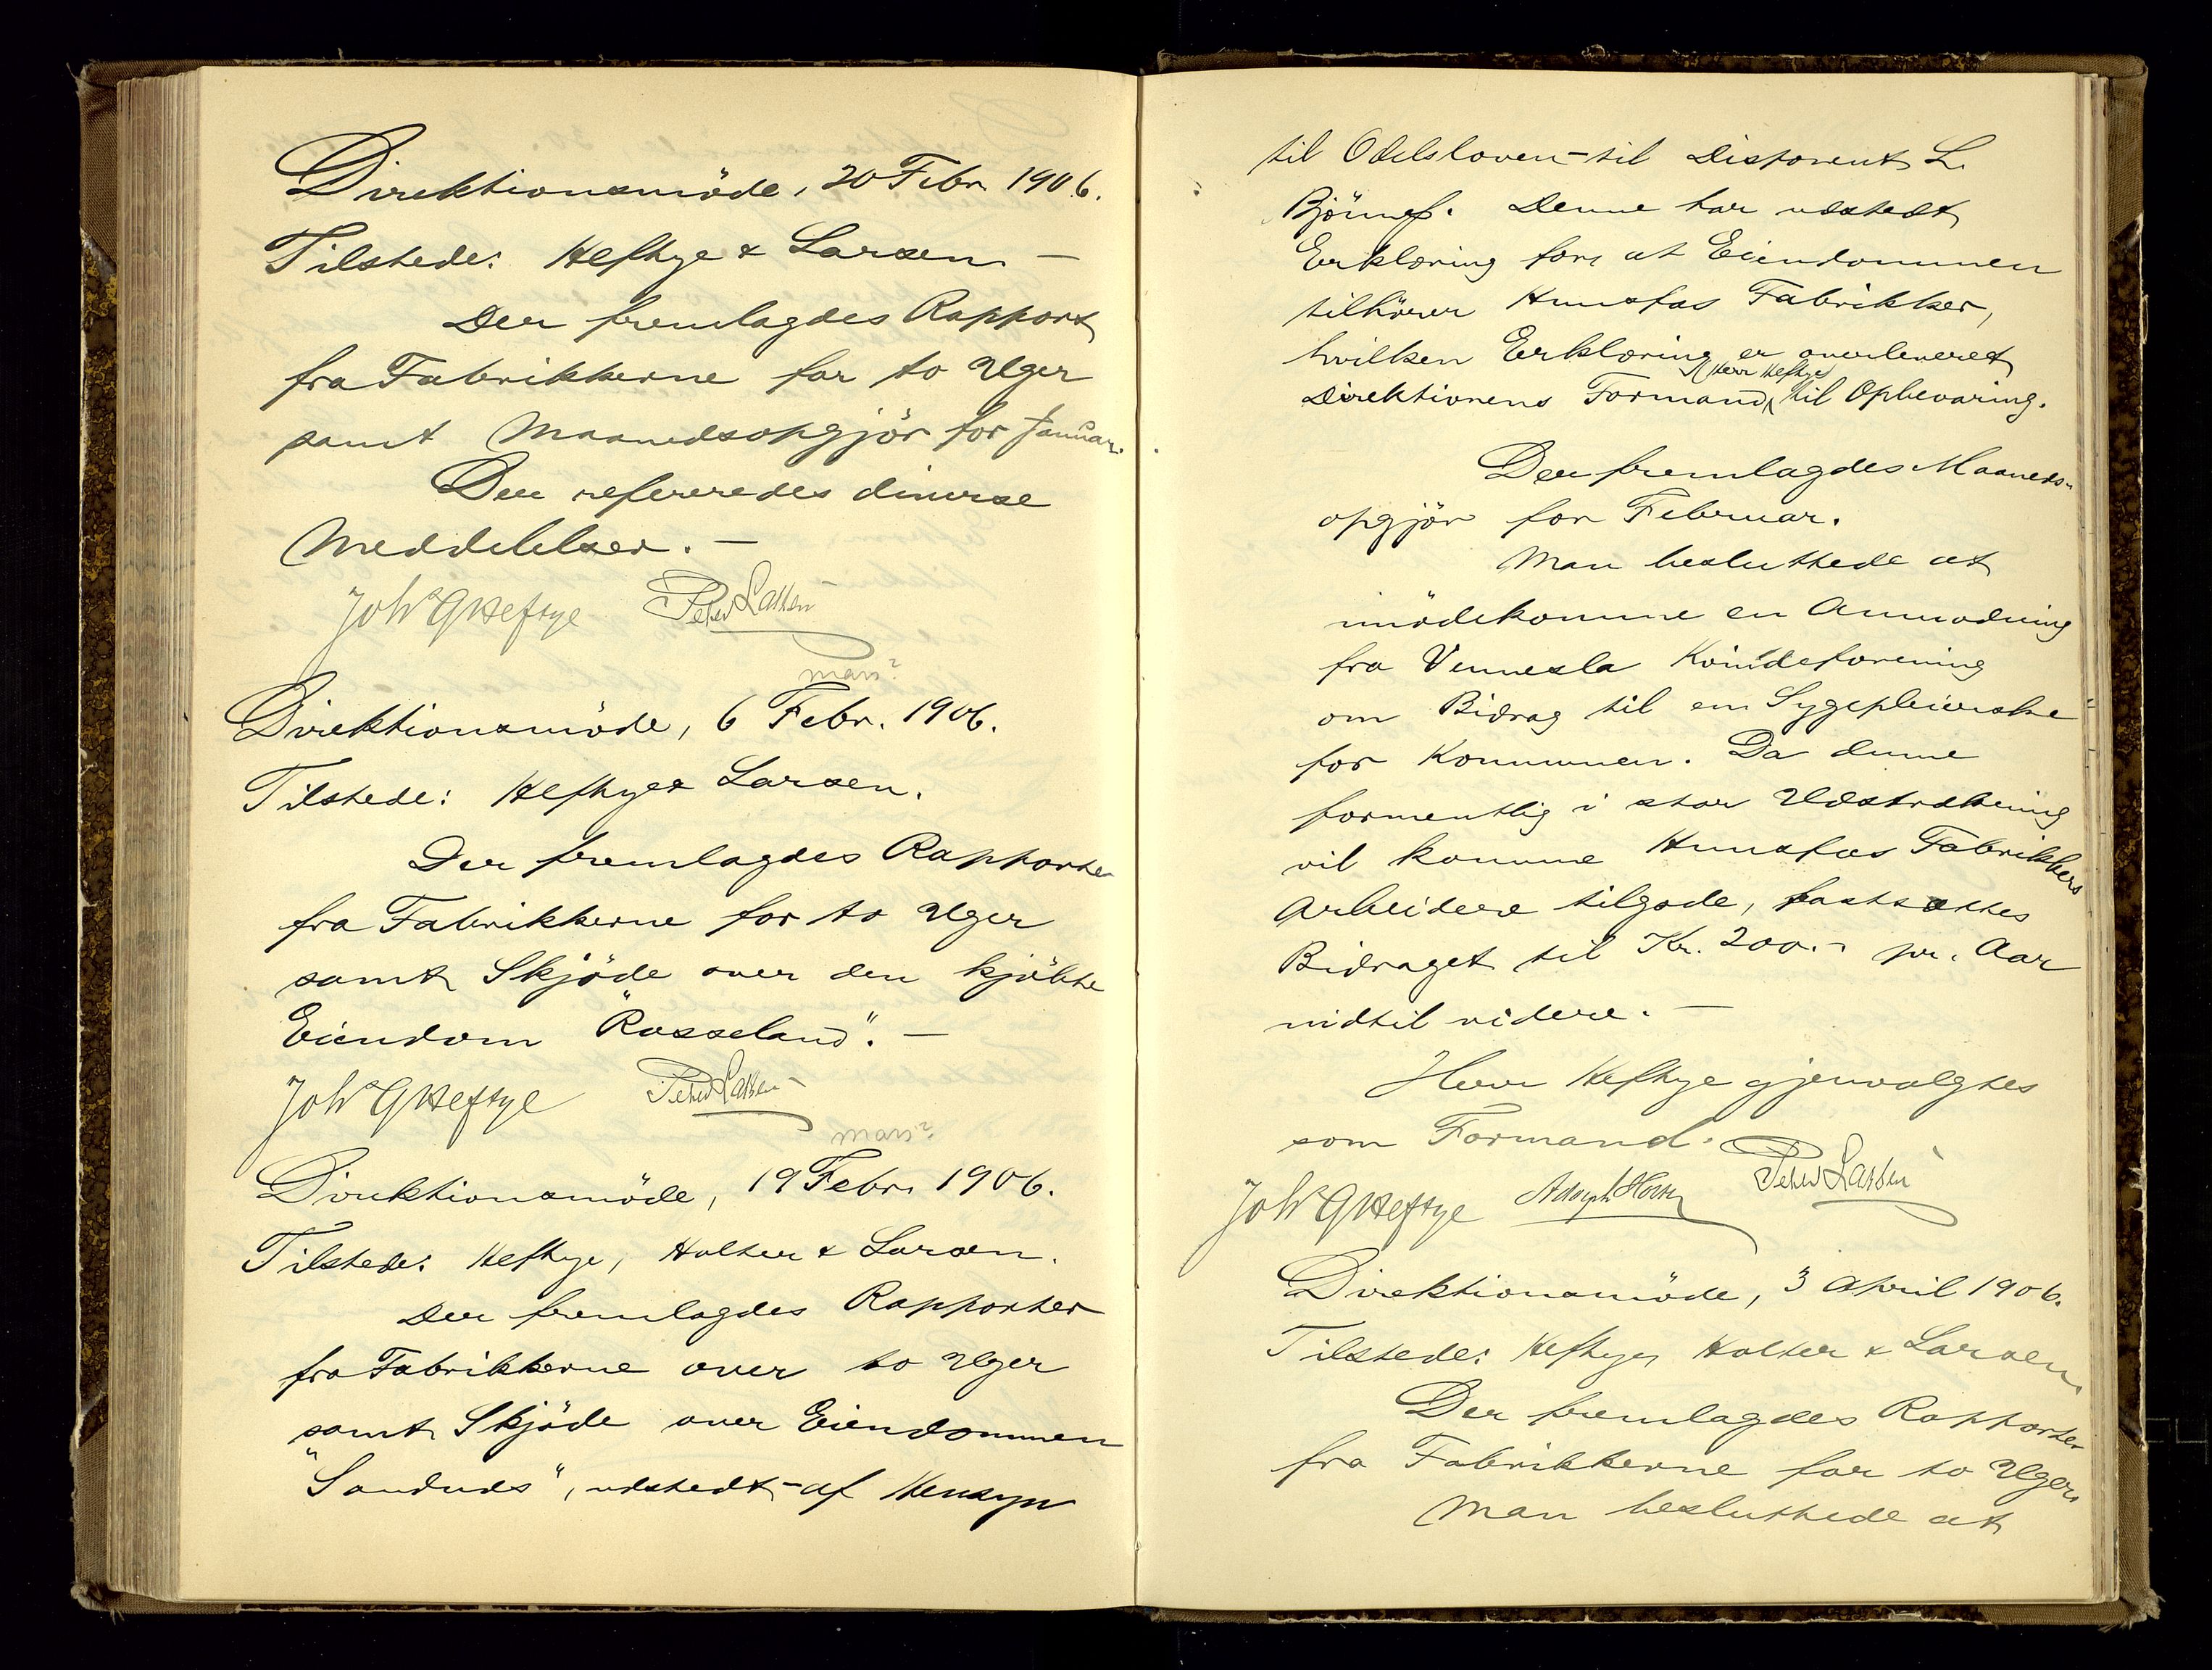 Direktionsmöde, 20 Febr. 1906.
Tilstede: Heftye & Larsen. —
Der fremlagdes Rapport
fra Fabrikkerne for to Uger
samt Maanedsopgjör for Januar.
Der refereredes diverse
Meddelelser. —
Joh's G Heftye Peter Larsen
mars?
Direktionsmöde, 6 Febr. 1906.
Tilstede: Heftye & Larsen.
Der fremlagdes Rapporter
fra Fabrikkerne for to Uger
samt Skjöde over den kjöbte
Eiendom "Rosseland". —
Joh's G Heftye Peter Larsen
mars?
Direktionsmöde, 19 Febr. 1906.
Tilstede: Heftye, Holter & Larsen.
Der fremlagdes Rapporter
fra Fabrikkerne over to Uger
samt Skjöde over Eiendommen
udstedt - af Hensyn
til Odelsloven - til Disponent L.
Denne har udstedt
Erklæring for, at Eiendommen
tilhörer Hunsfos Fabrikker,
hvilken Erklæring er overleveret
Direktionens Formand (Herr Heftye) til Opbevaring.
Der fremlagdes Maaneds-
opgjör for Februar.
Man besluttede at
imödekomme en Anmodning
fra Vennesla Kvindeforening
om Bidrag til en Sygepleierske
for Kommunen. Da denne
formentlig i stor Udstrækning
vil komme Hunsfos Fabrikkers
Arbeidere tilgode, fastsættes
Bidraget til Kr. 200.- pr. Aar
indtil videre. —
Herr Heftye gjenvalgtes
som Formand.
Joh's G Heftye Adolph Holter Peter Larsen
Direktionsmöde, 3 April 1906.
Tilstede: Heftye, Holter & Larsen.
Der fremlagdes Rapporter
fra Fabrikkerne for to Uger.
Man besluttede at